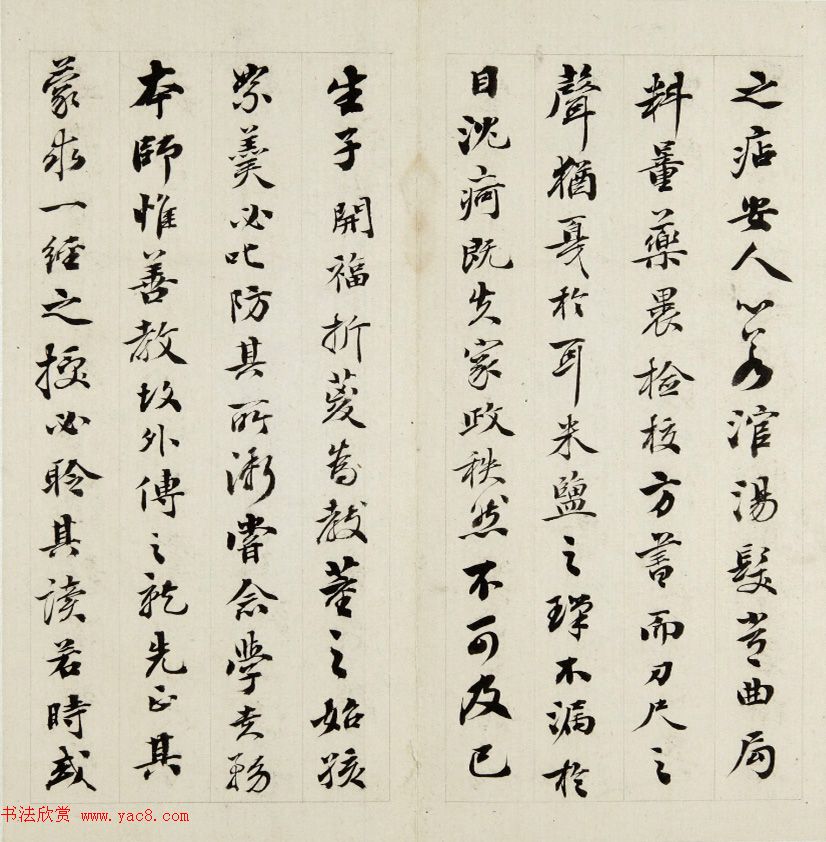 之痁安人心若涫湯髮常曲局
料量藥裹檢校方書而刀尺之
聲猶戛於耳米鹽之璅不漏於
目沈痾既失家政秩然不可及已
生子開福折葼為教葷之始孩
絮羹必叱防其所漸嘗念學貴務
本師惟善教故外傅之就先正其
蒙求一經之授必聆其讀若時或
书法欣赏 www.yac8.com